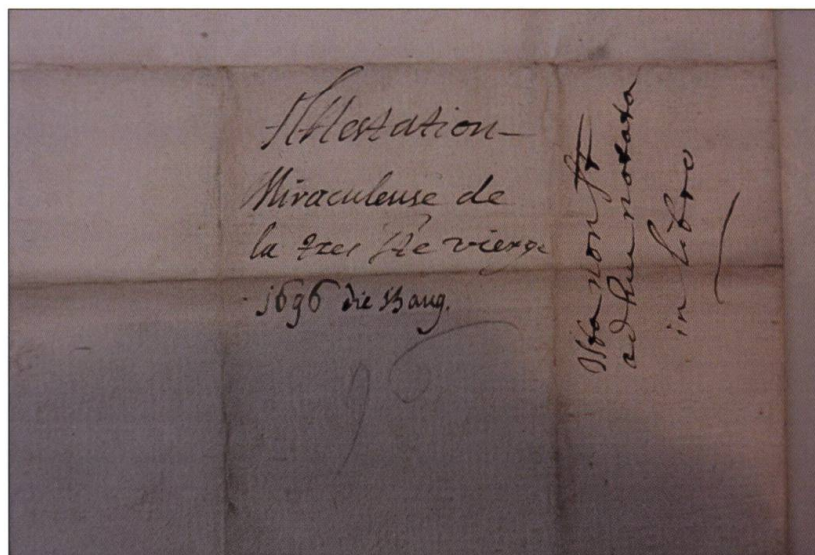 Attestation
Miraculeuse de
la tres Ste vierge
1696 die 13 aug.
96
Ista non st
adhuc notata
in libro